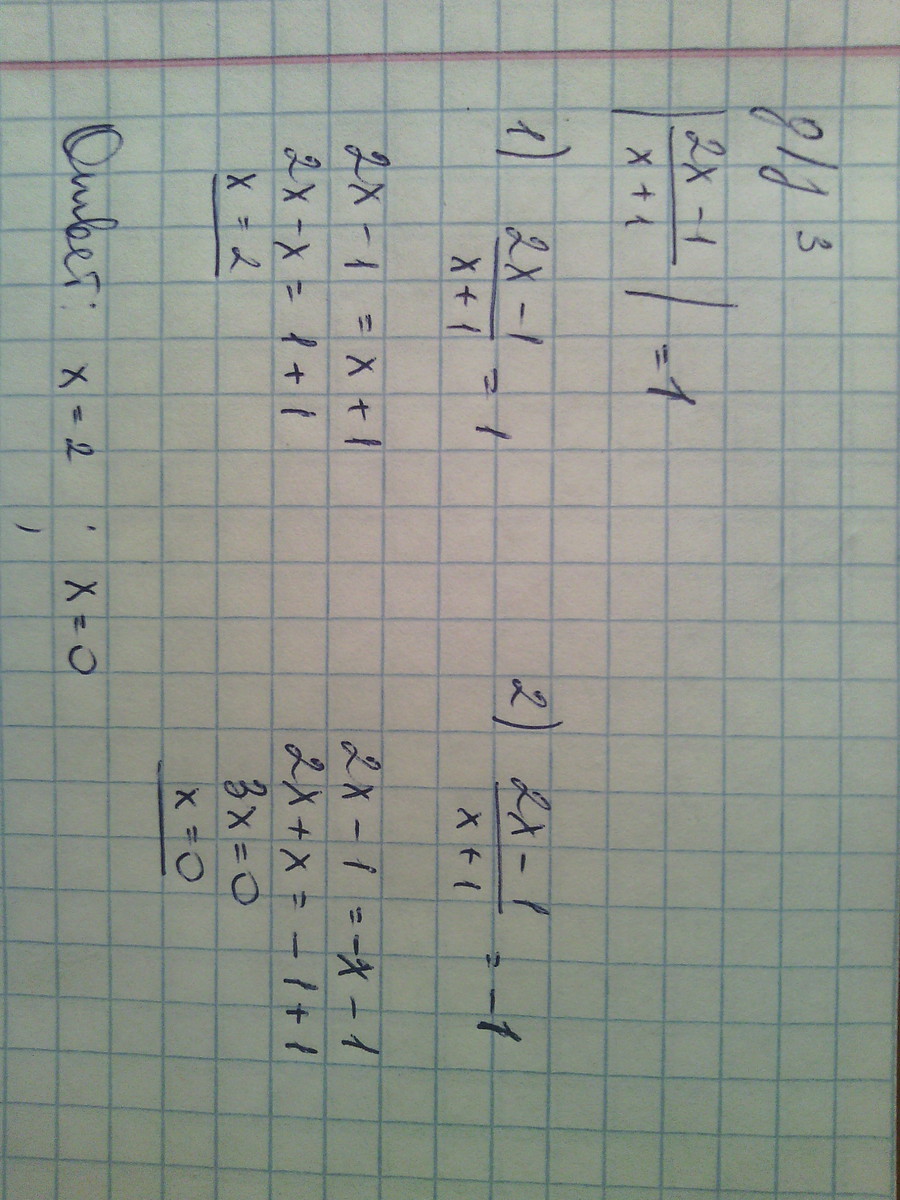 д/з 3
|(2x - 1)/(x + 1)| = 1
1) (2x - 1)/(x + 1) = 1
2x - 1 = x + 1
2x - x = 1 + 1
x = 2
2) (2x - 1)/(x + 1) = -1
2x - 1 = -x - 1
2x + x = -1 + 1
3x = 0
x = 0
Ответ: x = 2 ; x = 0